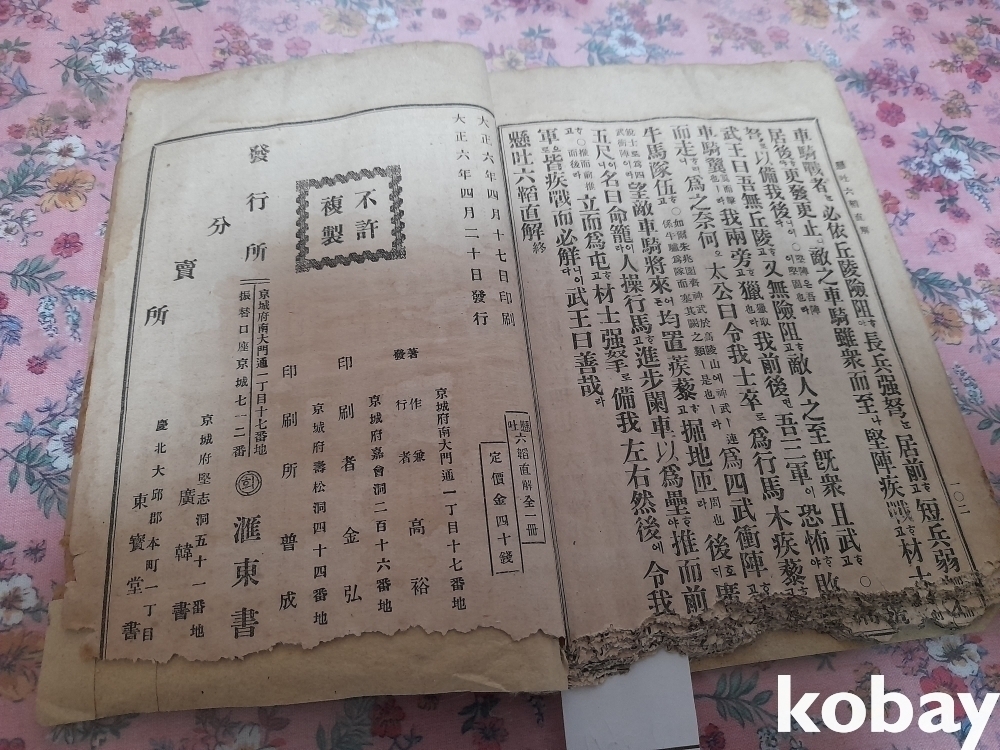 懸吐六韜直解
一〇二
車騎戰者는必依丘陵險阻하야長兵强弩는居前하고短兵弱
居後하야更發更止니敵之車騎雖衆而至나堅陣疾戰하고材士
弩로以備我後니이다
武王曰吾無丘陵하고又無險阻하고敵人之至旣衆且武하고
車騎翼我兩旁하고獵我前後면吾三軍이恐怖하야敗
而走니爲之奈何오太公曰令我士卒로爲行馬木疾藜
牛馬隊伍爲四武衝陣
望敵車騎將來하고均置疾藜하고掘地匝後호되廣
五尺이니名曰命籠이라人操行馬하고進步闌車以爲壘하야推而前
立而爲屯하고材士强弩로備我左右然後에令我
軍으로皆疾戰而必解니이다武王曰善哉라
懸吐六韜直解終
大正六年四月十七日印刷
大正六年四月二十日發行
不許
複製
懸吐六韜直解全一冊
定價金四十錢
京城府南大門通一丁目十七番地
著作兼
發行者 高裕
京城府嘉會洞二百十六番地
印刷者 金弘
京城府壽松洞四十四番地
印刷所 普成
發行所
京城府南大門通一丁目十七番地
振替口座京城七一二番
滙東書
分賣所
京城府堅志洞五十一番地
廣韓書
慶北大邱郡本町一丁目
東寶堂書
kobay